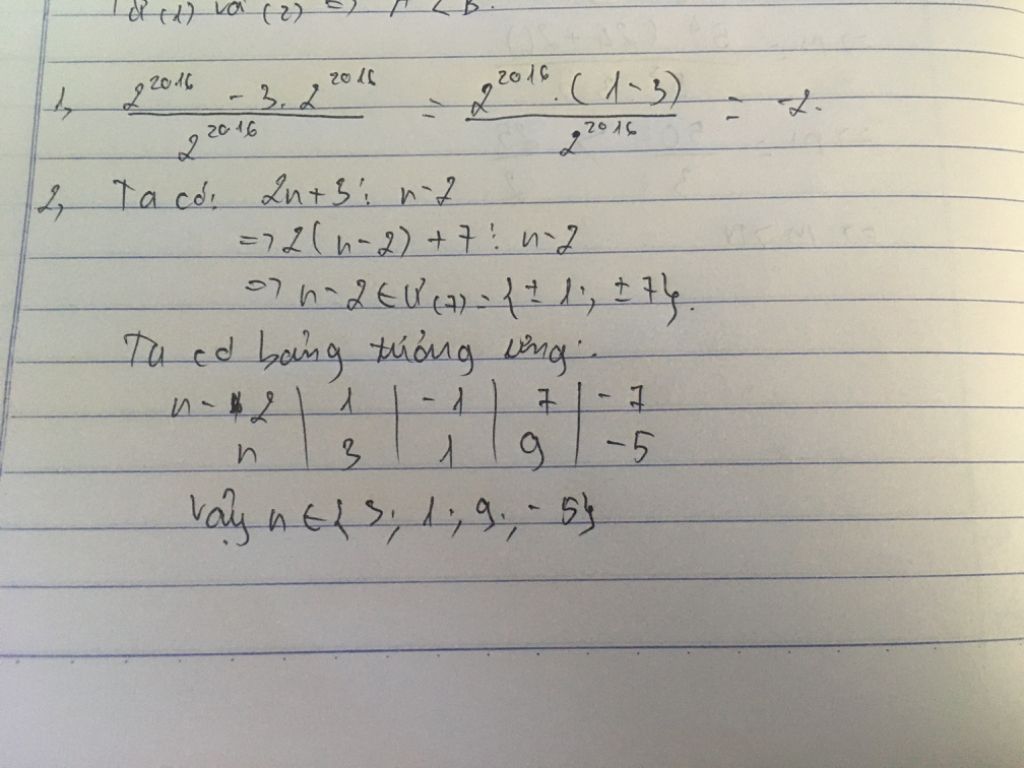 Từ (1) và (2) => A < B.
1, 2^2016 - 3.2^2016 / 2^2016 = 2^2016.(1-3) / 2^2016 = -2.
2, Ta có: 2n+3 ⋮ n-2
=> 2(n-2) + 7 ⋮ n-2
=> n-2 ∈ Ư(7) = {±1; ±7}.
Ta có bảng tương ứng:
n-2 | 1 | -1 | 7 | -7
n | 3 | 1 | 9 | -5
Vậy n ∈ {3; 1; 9; -5}